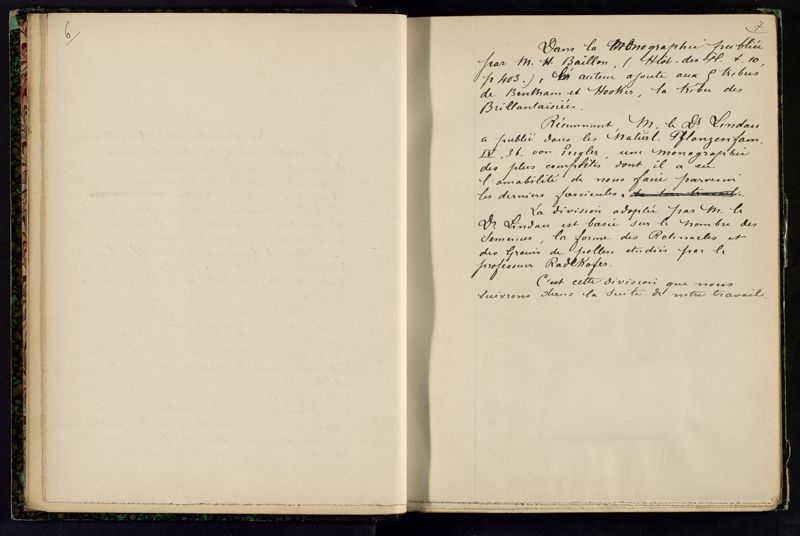 6
7
Dans la Monographie publiée
par M. H. Baillon, (Hist. des Pl. t. 10,
p 403.), l' auteur ajoute aux 5 tribus
de Bentham et Hooker, la tribu des
Brillantaisiées.
Récemment, M. le Dr Lindau
a publié dans les Natürl. Pflanzenfam.
IV, 3b. von Engler, une monographie
des plus complètes dont il a eu
l'amabilité de nous faire parvenir
les derniers fascicules de son travail.
La division adoptée par M. le
Dr Lindau est basée sur le nombre des
Semences, la forme des Retinacles et
des Grains de pollen etudiés par le
professeur Radlkofer.
C'est cette division que nous
suivrons dans la suite de notre travail.